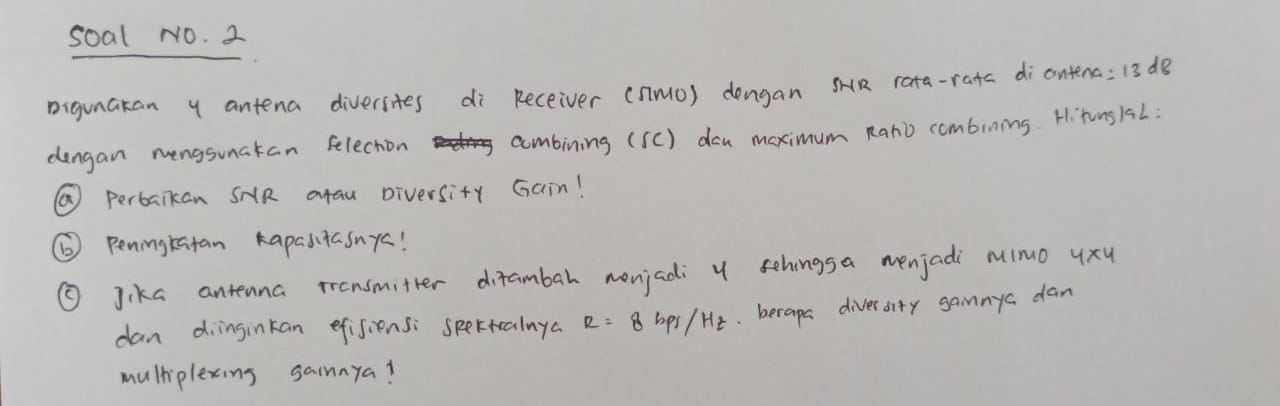 Soal No. 2
Digunakan 4 antena diversitas di Receiver (SIMO) dengan SNR rata-rata di antena = 13 dB
dengan menggunakan Selection combining (SC) dan maximum Ratio combining. Hitunglah :
(a) Perbaikan SNR atau Diversity Gain!
(b) Peningkatan kapasitasnya!
(c) Jika antenna transmitter ditambah menjadi 4 sehingga menjadi MIMO 4x4
dan diinginkan efisiensi spektralnya R = 8 bps/Hz. berapa diversity gainnya dan
multiplexing gainnya!